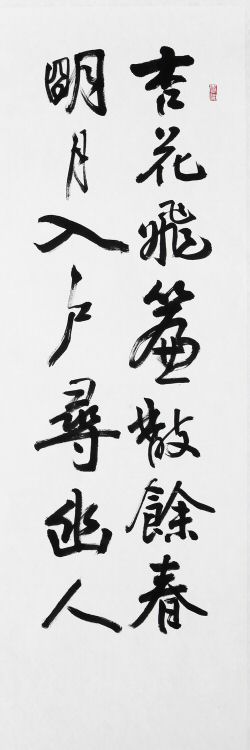 杏花飛簾散餘春
明月入戶尋幽人